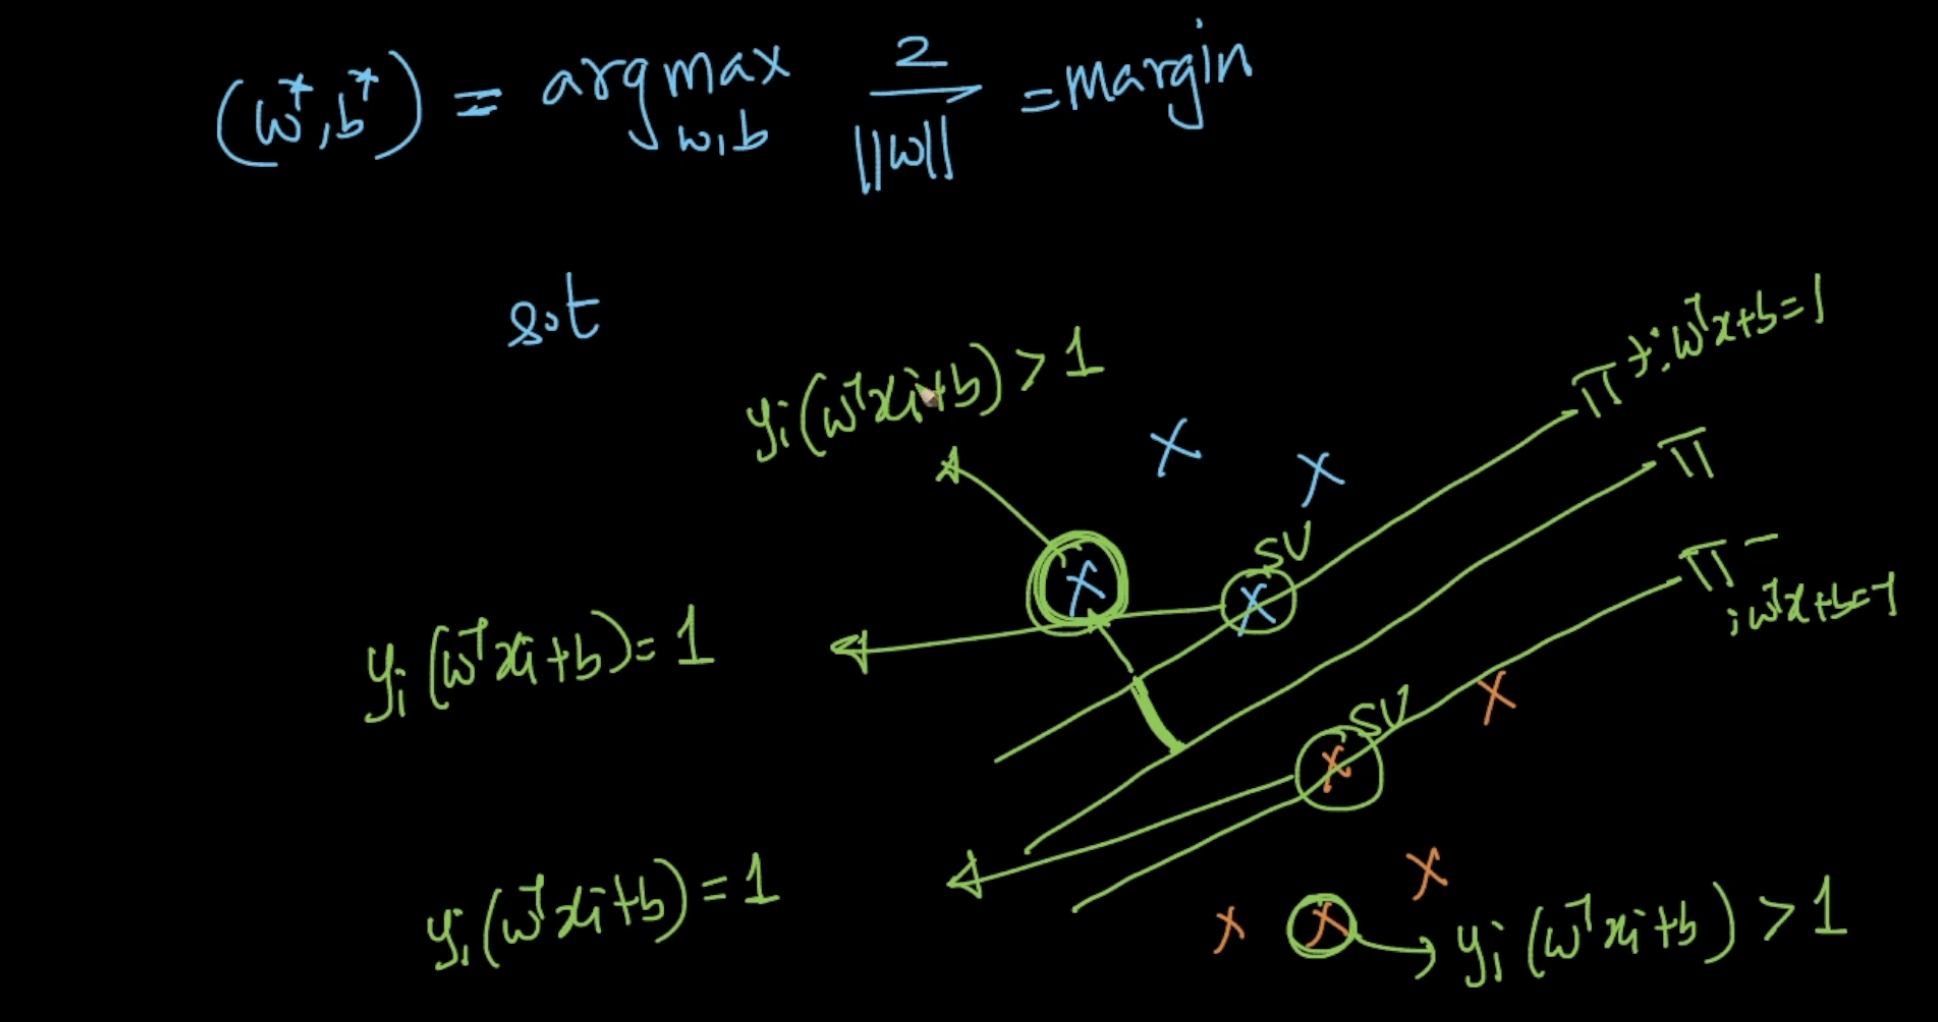 (w*, b*) = argmax w,b 2/||w|| = margin
s.t
yi(wᵀxi+b) > 1
π⁺: wᵀx+b=1
π
SV
π⁻
: wᵀx+b=-1
yi(wᵀxi+b) = 1
SV
yi(wᵀxi+b) = 1
yi(wᵀxi+b) > 1